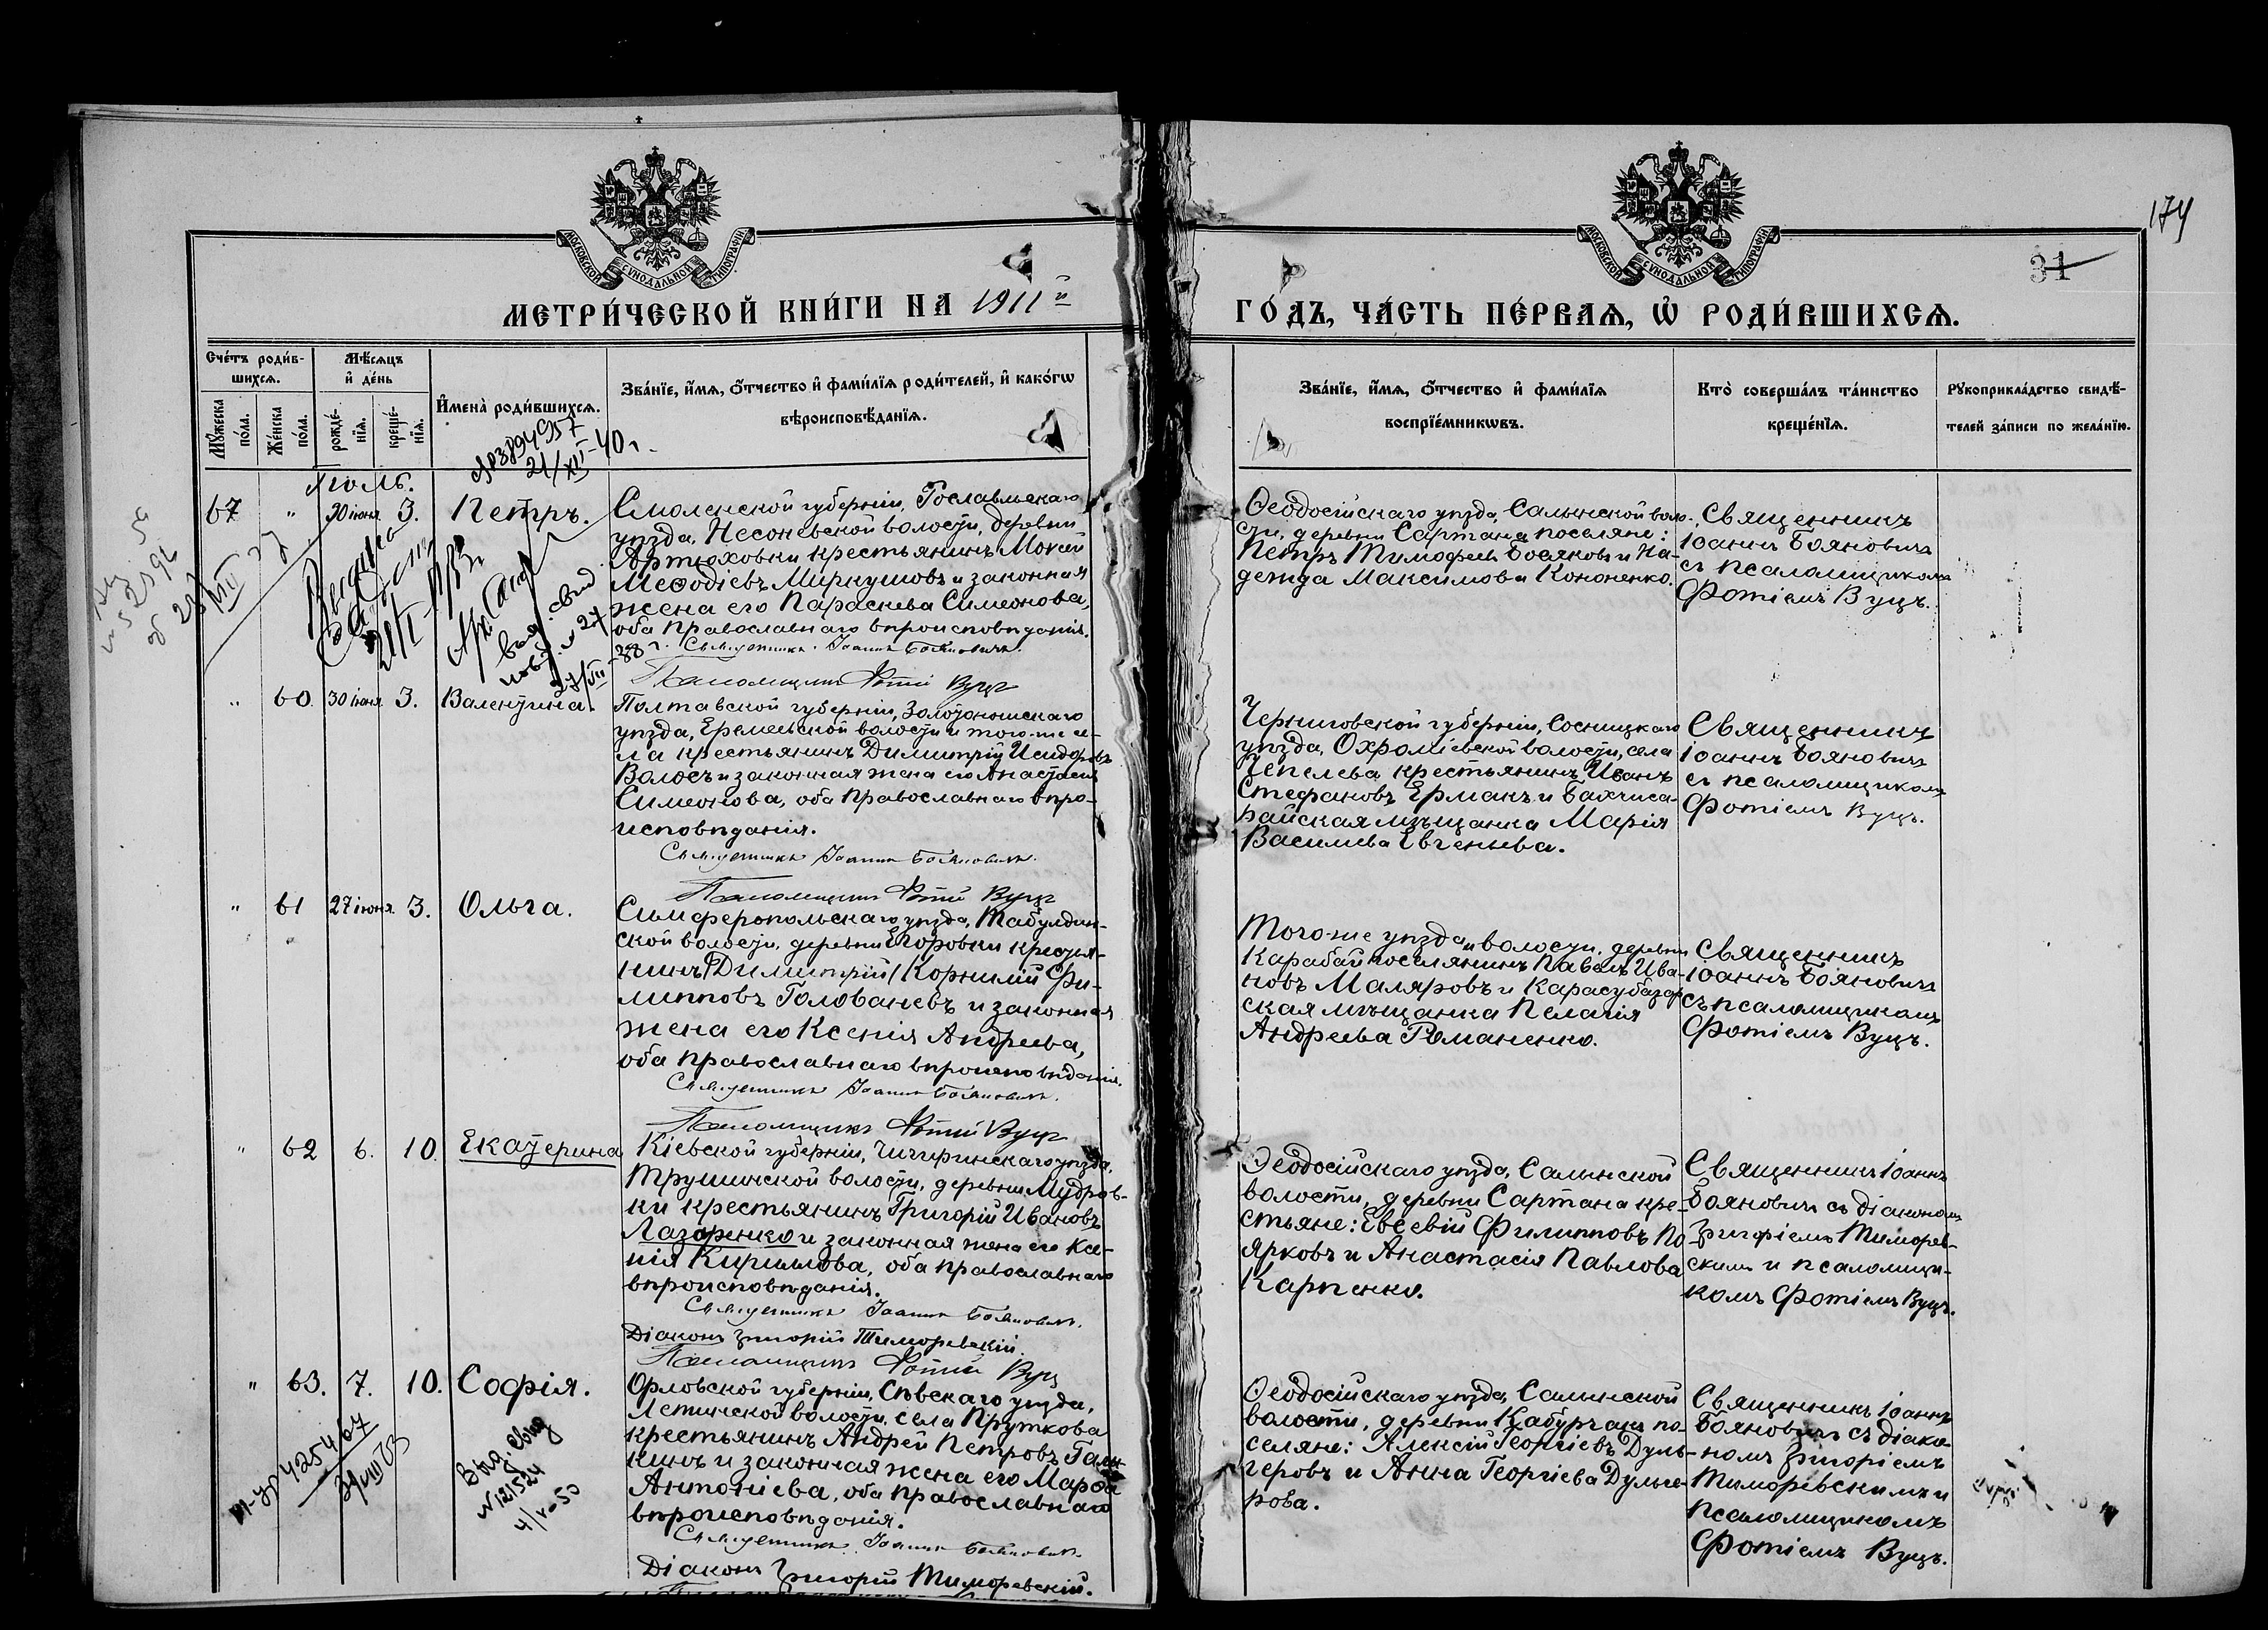 174
31
МОСКОВСКОЙ СѴНОДАЛЬНОЙ ТИПОГРАФІИ
МОСКОВСКОЙ СѴНОДАЛЬНОЙ ТИПОГРАФІИ
МЕТРИ́ЧЕСКОЙ КНИ́ГИ НА 1911й
ГО́ДЪ, ЧА́СТЬ ПЕ́РВАѦ, Ѡ҆ РОДИ́ВШИХСѦ.
Сче́тъ роди́в-
шихсѧ.
Мꙋ́жеска по́ла.
Же́нска по́ла.
Мѣ́сѧцъ
и҆ де́нь
рожде́-
нїѧ.
креще́-
нїѧ.
И҆мена̀ роди́вшихсѧ.
Зва́нїе, и҆́мѧ, ѻ҆́тчество и҆ фами́лїѧ роди́телей, и҆ како́гѡ
вѣроисповѣ́данїѧ.
Зва́нїе, и҆́мѧ, ѻ҆́тчество и҆ фами́лїѧ
воспрїе́мникѡвъ.
Кто̀ соверша́лъ та́инство
креще́нїѧ.
Рꙋкоприкла́дство свидѣ́-
телей за́писи по жела́нїю.
21/XII-40 г.
Іюль.
67 " 30 іюня 3. Петръ.
Смоленской губерніи, Рославльскаго
уѣзда, Несоневской волости, деревни
Артюховки крестьянинъ Мокій
Меѳодіевъ Миркушовъ и законная
жена его Параскева Симеонова,
оба православнаго вѣроисповѣданія.
Священникъ Іоаннъ Бояновичъ.
Псаломщикъ Фотій Вуцъ
Ѳеодосійскаго уѣзда, Салынской воло-
сти, деревни Сартана поселяне:
Петръ Тимофеевъ Бояковъ и На-
дежда Максимова Кононенко.
Священникъ
Іоаннъ Бояновичъ
съ псаломщикомъ
Фотіемъ Вуцъ.
" 60. 30 іюня 3. Валентина.
Полтавской губерніи, Золотоношскаго
уѣзда, Еремеевской волости и того-же се-
ла крестьянинъ Димитрій Исидоровъ
Волосъ и законная жена его Анастасія
Симеонова, оба православнаго вѣро-
исповѣданія.
Священникъ Іоаннъ Бояновичъ.
Псаломщикъ Фотій Вуцъ
Черниговской губерніи, Сосницкаго
уѣзда, Охроміевской волости, села
Чепелева крестьянинъ Иванъ
Стефановъ Ермакъ и Бахчиса-
райская мѣщанка Марія
Василиева Евгеньева.
Священникъ
Іоаннъ Бояновичъ
съ псаломщикомъ
Фотіемъ Вуцъ.
" 61 27 іюня. 3. Ольга.
Симферопольскаго уѣзда, Табулдин-
ской волости, деревни Егоровки крестья-
нинъ Димитрій/Корнилій Фи-
липповъ Голованевъ и законная
жена его Ксенія Андреева,
оба православнаго вѣроисповѣданія.
Священникъ Іоаннъ Бояновичъ.
Псаломщикъ Фотій Вуцъ
Того-же уѣзда и волости, деревни
Карабай поселянинъ Павелъ Ива-
новъ Маляровъ и Карасубазар-
ская мѣщанка Пелагія
Андреева Романенко.
Священникъ
Іоаннъ Бояновичъ
съ псаломщикомъ
Фотіемъ Вуцъ.
" 62 6. 10. Екатерина
Кіевской губерніи, Чигиринскаго уѣзда,
Трушинской волости, деревни Мудров-
ки крестьянинъ Григорій Ивановъ
Лазаренко и законная жена его Ксе-
нія Кириллова, оба православнаго
вѣроисповѣданія.
Священникъ Іоаннъ Бояновичъ.
Діаконъ Григорій Тиморевскій.
Псаломщикъ Фотій Вуцъ
Ѳеодосійскаго уѣзда, Салынской
волости, деревни Сартана кре-
стьяне: Евсевій Филипповъ По-
ярковъ и Анастасія Павлова
Карпенко.
Священникъ Іоаннъ
Бояновичъ съ діакономъ
Григоріемъ Тиморев-
скимъ и псаломщи-
комъ Фотіемъ Вуцъ.
" 63. 7. 10. Софія.
Орловской губерніи, Сѣвскаго уѣзда,
Летической волости, села Пруткова
крестьянинъ Андрей Петровъ
и законная жена его Марѳа
Антоніева, оба православнаго
вѣроисповѣданія.
Священникъ Іоаннъ Бояновичъ.
Діаконъ Григорій Тиморевскій.
Ѳеодосійскаго уѣзда, Салынской
волости, деревни Кабурчакъ по-
селяне: Алексій Георгіевъ Дуль-
геровъ и Анна Георгіева Дульге-
рова.
Священникъ Іоаннъ
Бояновичъ съ діако-
номъ Григоріемъ
Тиморевскимъ и
псаломщикомъ
Фотіемъ Вуцъ.
Выд. свид
№ 121524
4/V-50